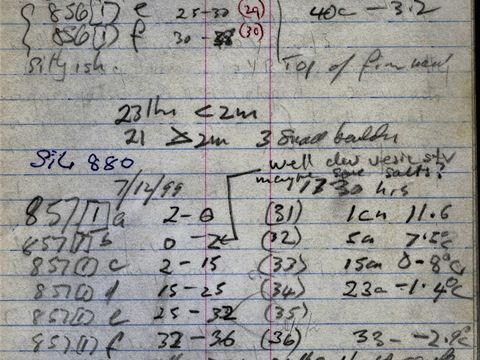 856(1) e 25-30 (29)
856(1) f 30- (30) 40c -3.2
Siltyish. Top of firm
23 lhs <2m
21 >2m 3 small
Site 880 well dev vesic
maybe some salts?
7/12/99 1730 hrs
857[1]a 2-0 (31) 1cm 11.6
857(1)b 0-2 (32) 5cm 7.5°C
857(1) c 2-15 (33) 15cm 0.8°C
857(1) d 15-25 (34) 23c -1.4°C
857(1) e 25-32 (35)
857(1) f 32-36 (36) 33- -2.9°C